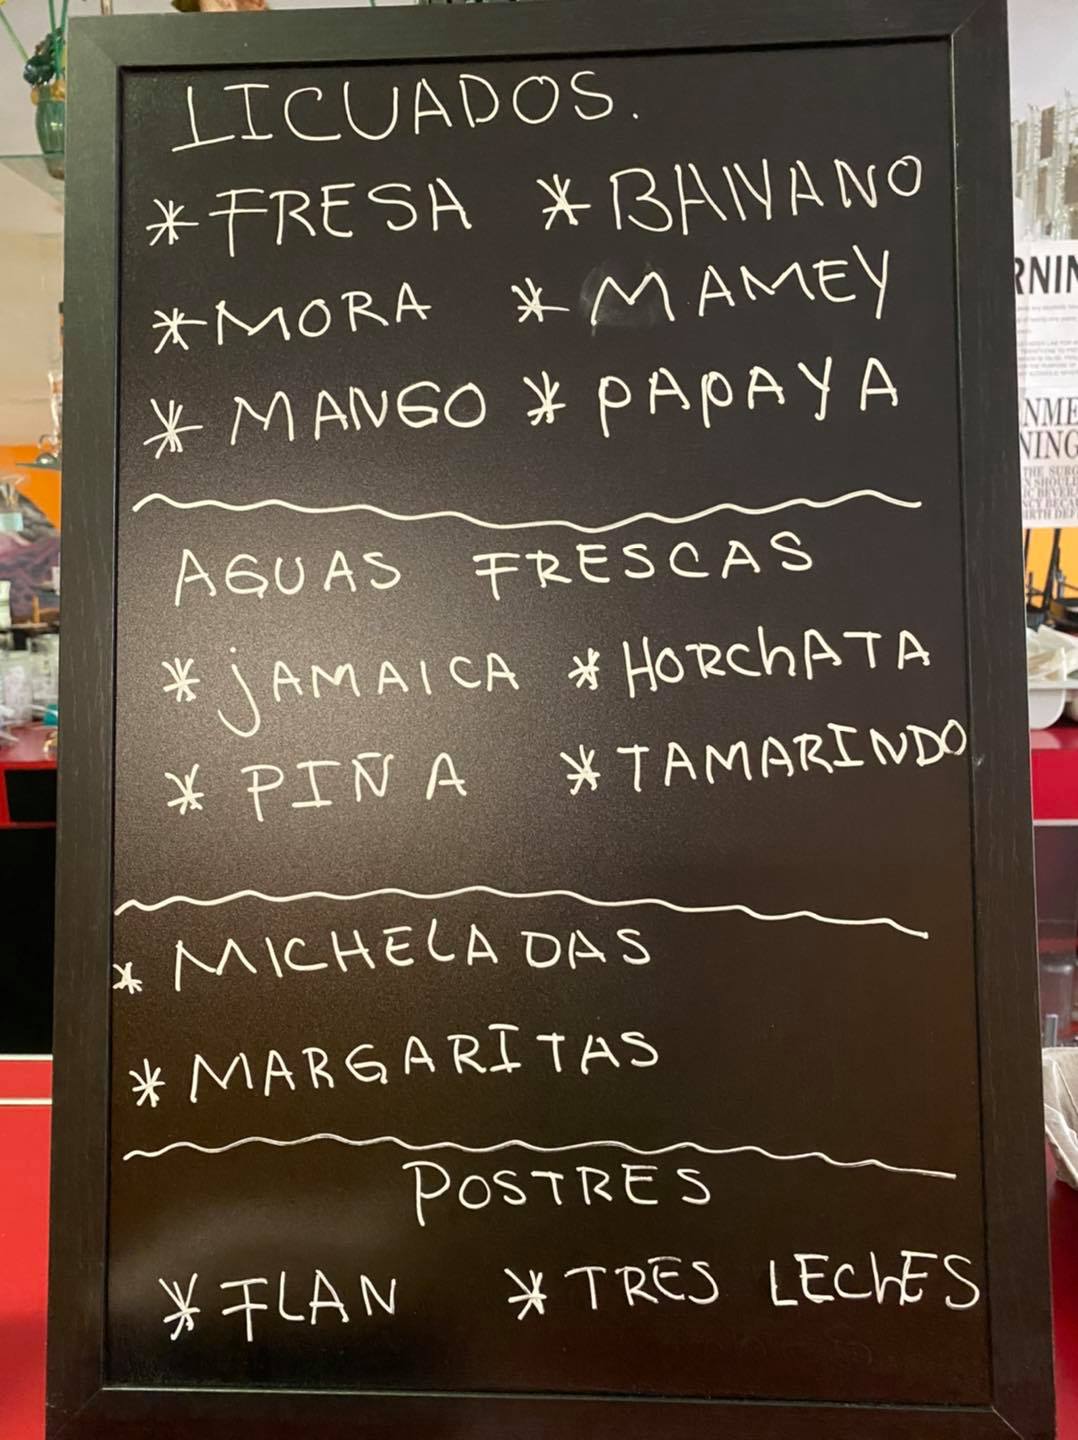 LICUADOS.
*FRESA *BANYANO
*MORA *MAMEY
*MANGO *PAPAYA
AGUAS FRESCAS
*JAMAICA *HORCHATA
*PIÑA *TAMARINDO
*MICHELADAS
*MARGARITAS
POSTRES
*FLAN *TRES LECHES
RNIN
NME
NING
THE SURG
N SHOULD
IC BEVER
NCY BECAU
IRTH DEF